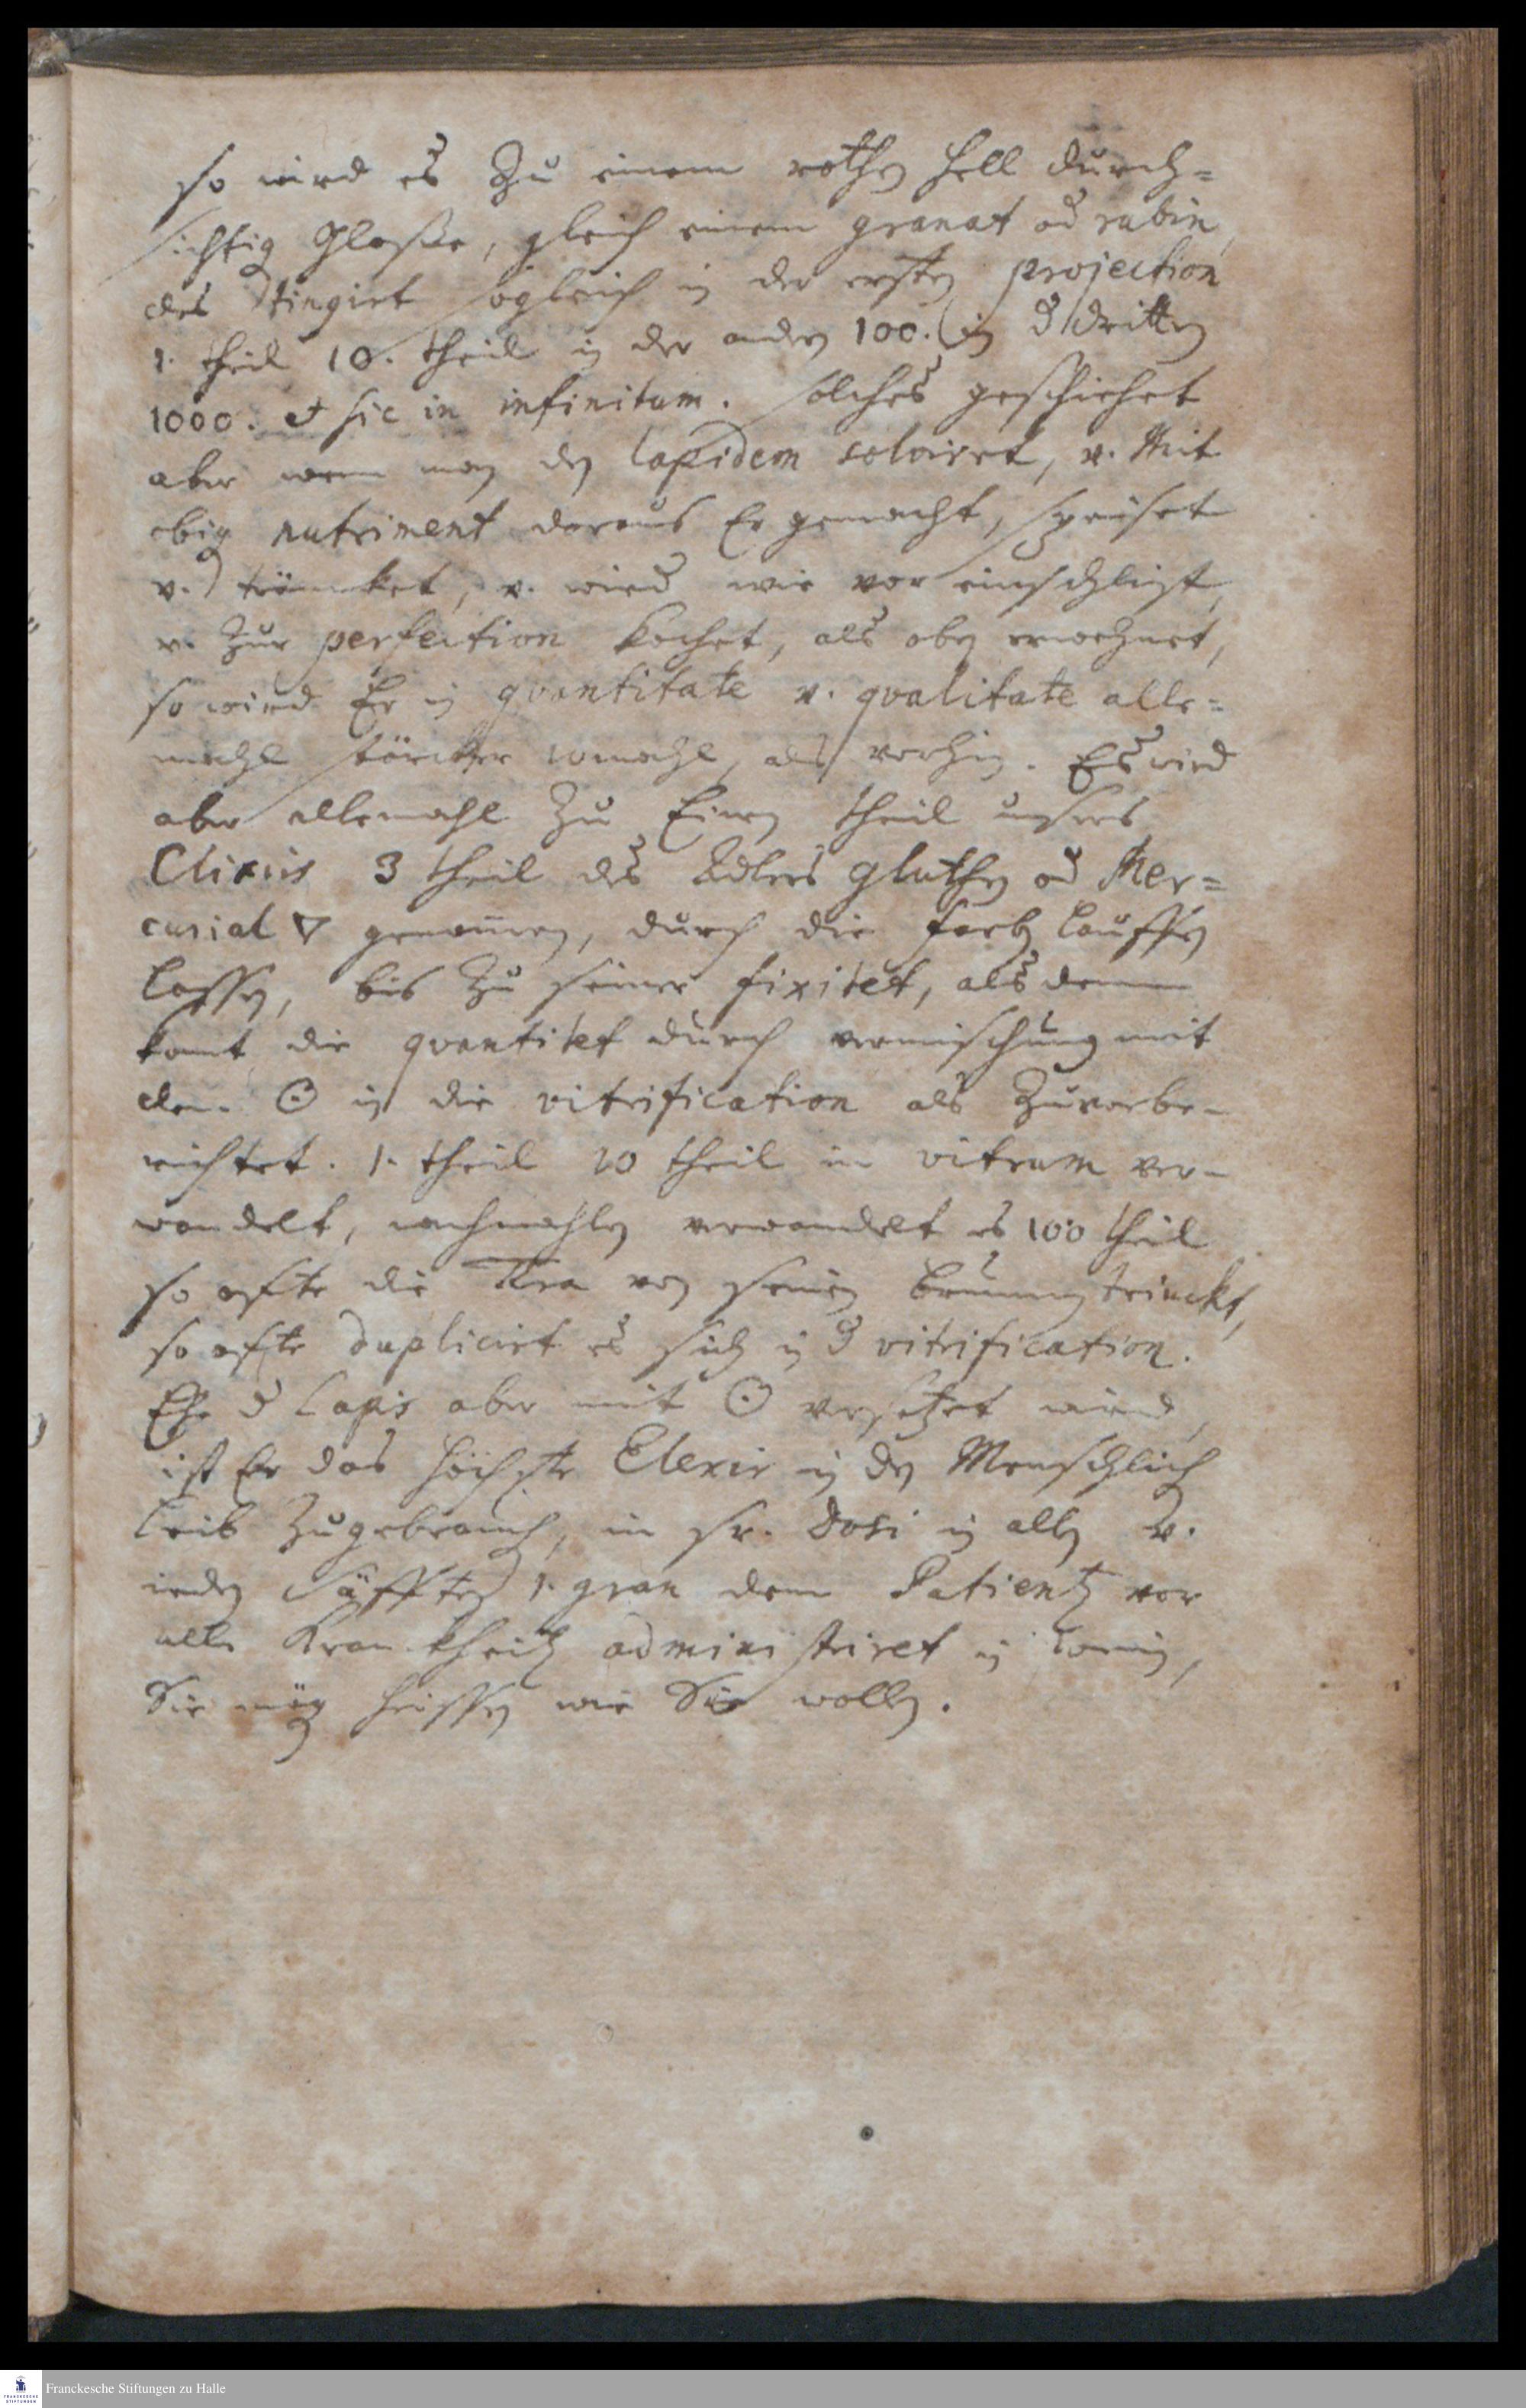 so wird es Zu einem rothen hell durch=
sichtig Glaße, gleich einem granat od rubin,
das tingirt sogleich in der ersten projection
1. theil 10. theil in der andern 100. in d dritten
1000. et sic in infinitum. solches geschiehet
aber wenn man den lapidem solviret, v. Mit
obig nutriment daraus Er gemacht, speiset
v. träncket, v. wird wie vor
v. Zur perfection kochet, als oben erwehnet,
so wird Er in qvantitate v. qvalitate alle=
mahl stärcker 10mahl, als vorhin. Es wird
aber allemahl Zu Einen theil unsers
Elixiris 3 theil des Adlers gluthen od Mer=
curial 🜄 genom̅en, durch die farben lauffen
lassen, bis Zu seiner fixitet, als denn
komt die qvantitet durch vermischung mit
dem ☉ in die vitrification als Zuvor be-
richtet. 1. theil 10 theil in vitrum ver-
wandelt, nachmahlen verwandelt es 100 theil
so offte die von seinen brunnen trinckt,
so offte duplicirt es sich in d vitrification.
Ehe d Lapis aber mit ☉ versetzet wird,
ist Er das höchste Elexir in den Menschlich
leib Zugebrauch, in sr. dosi in allen v.
ieden säfften 1. gran dem Patienten vor
alle Kranckheiten administriret in
Sie mög heissen wie Sie wollen.
Franckesche Stiftungen zu Halle